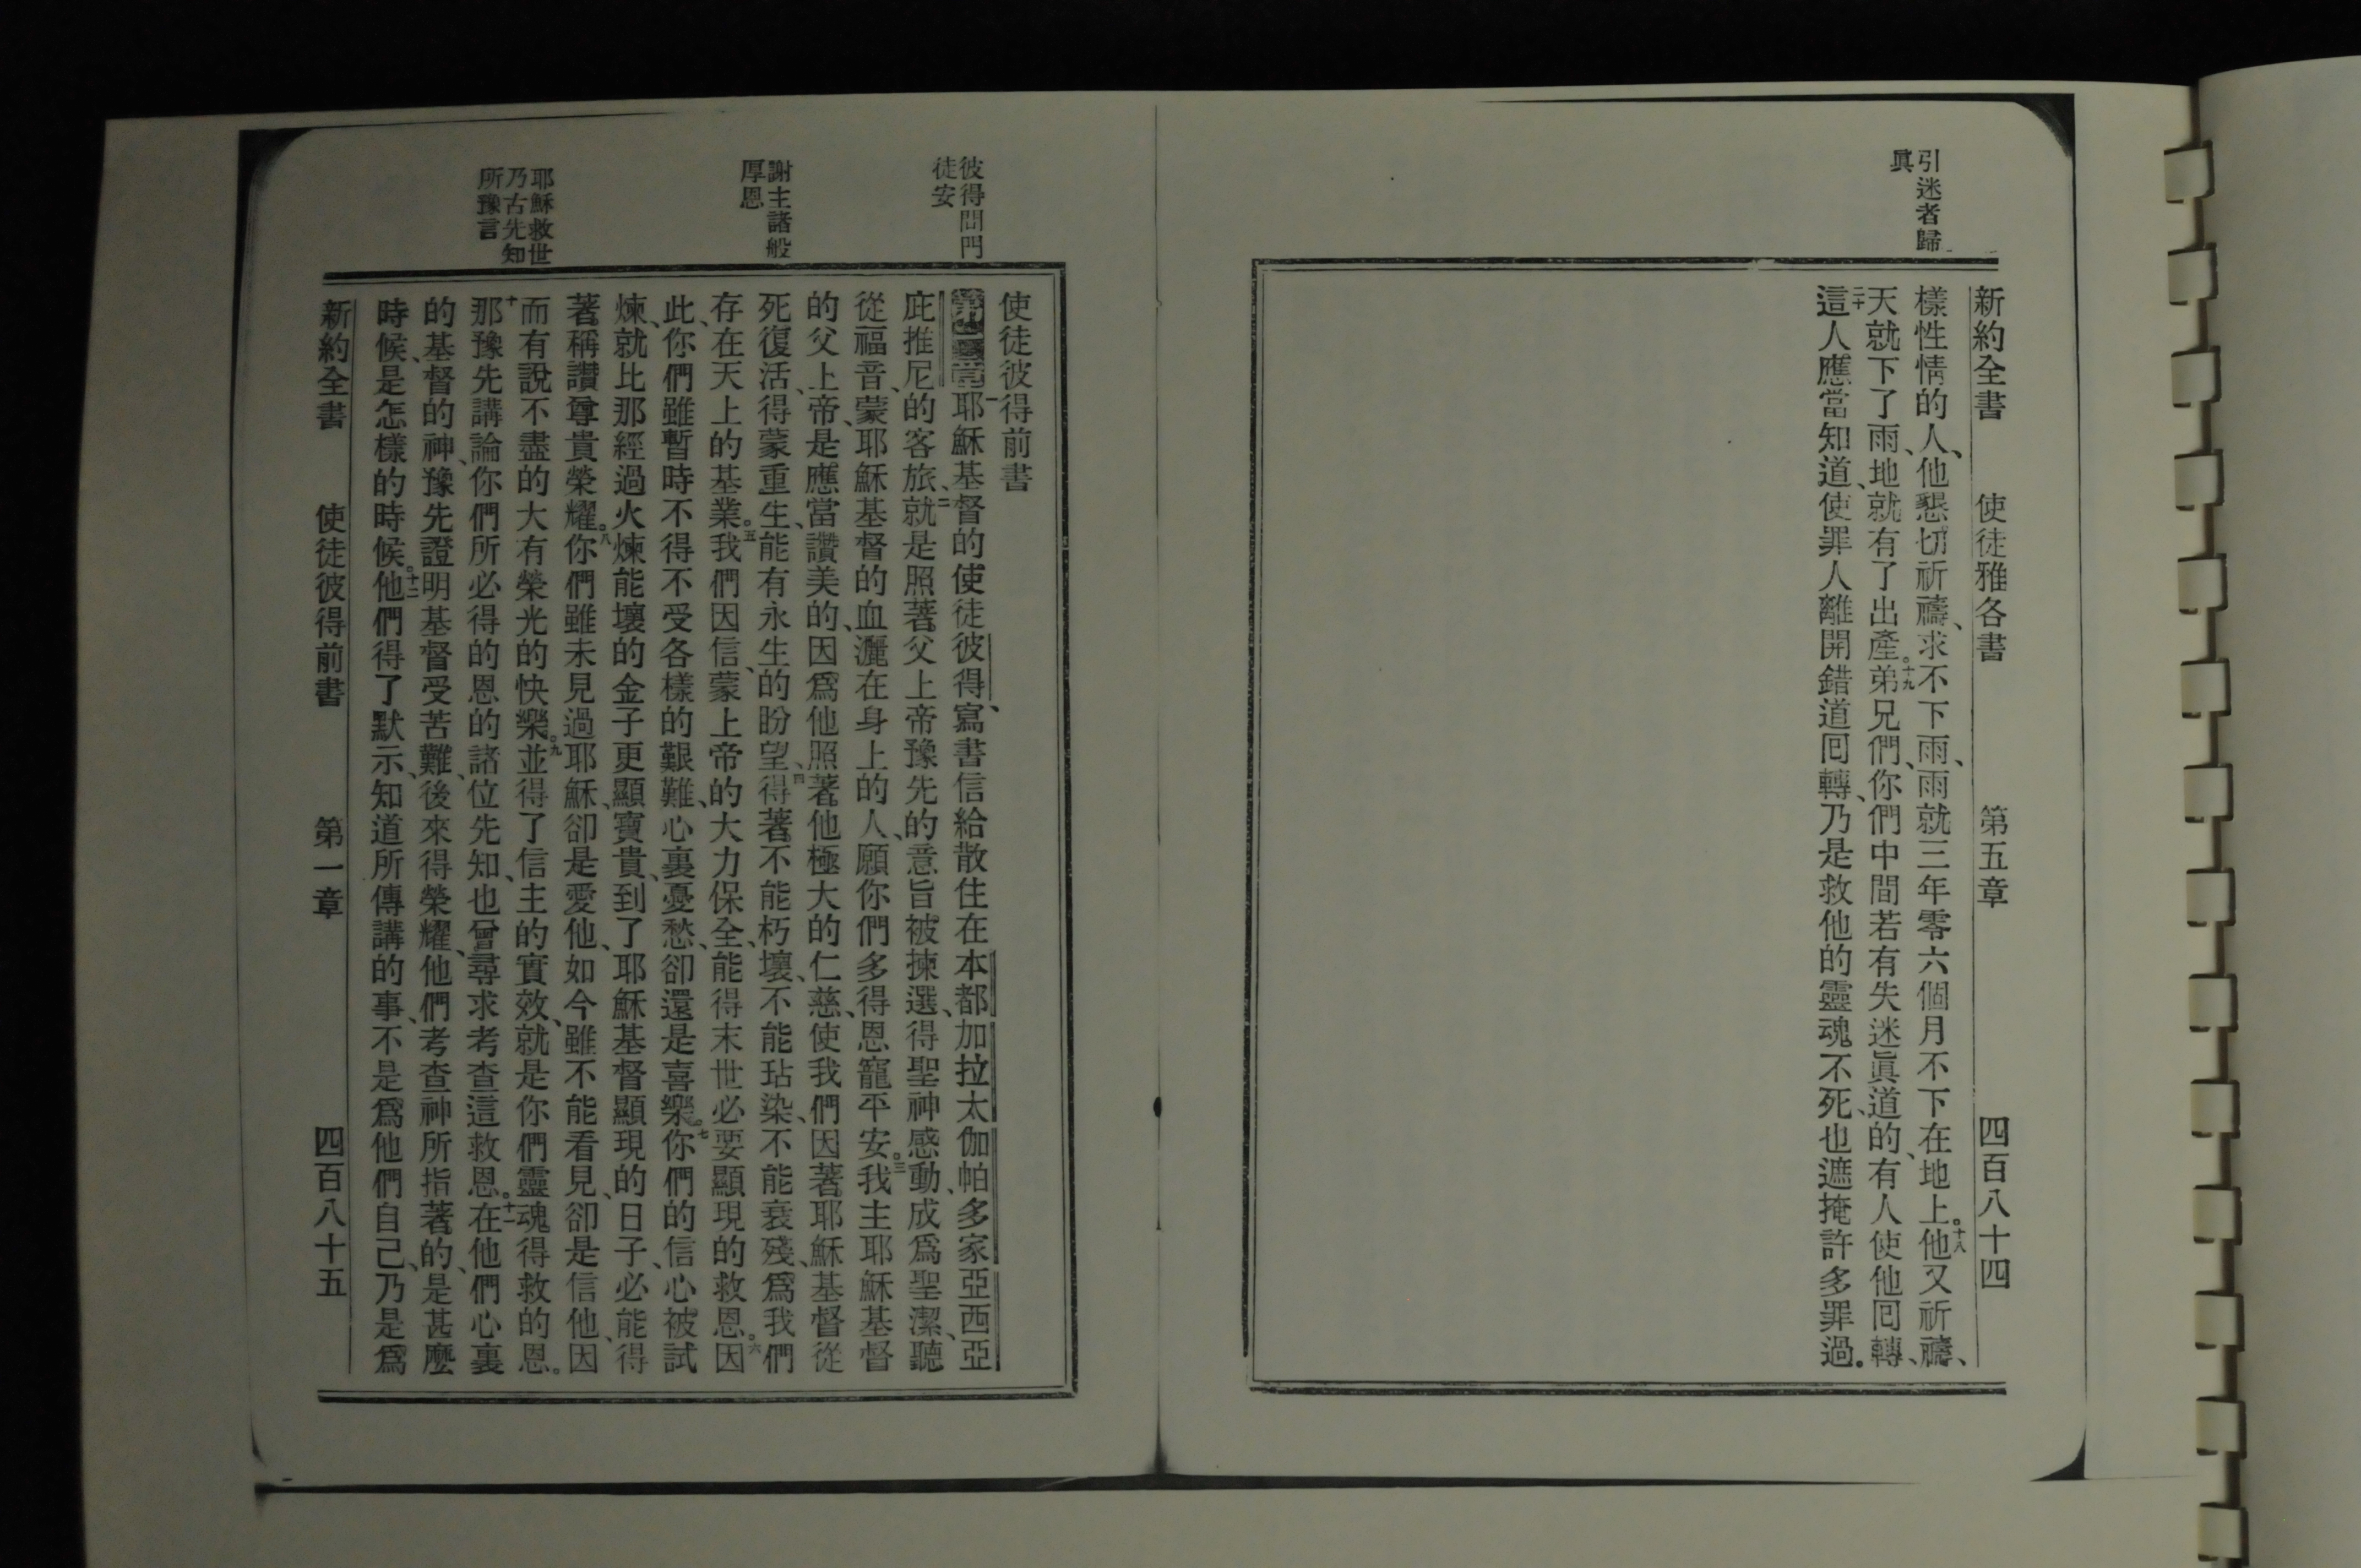 引迷者歸
眞
新約全書 使徒雅各書 第五章 四百八十四
樣性情的人、他懇切祈禱、求不下雨、雨就三年零六個月不下在地上。十八他又祈禱、
天就下了雨、地就有了出產。十九弟兄們、你們中間若有失迷眞道的、有人使他囘轉、
二十這人應當知道、使罪人離開錯道囘轉、乃是救他的靈魂不死、也遮掩許多罪過。
彼得問門
徒安
謝主諸般
厚恩
耶穌救世
乃古先知
所豫言
使徒彼得前書
第一章一耶穌基督的使徒彼得、寫書信給散住在本都加拉太伽帕多家亞西亞
庇推尼、的客旅、二就是照著父上帝豫先的意旨被揀選、得聖神感動、成爲聖潔、聽
從福音、蒙耶穌基督的血灑在身上的人、願你們多得恩寵平安。三我主耶穌基督
的父上帝、是應當讚美的、因爲他照著他極大的仁慈、使我們因著耶穌基督從
死復活、得蒙重生、能有永生的盼望、四得著不能朽壞、不能玷染、不能衰殘、爲我們
存在天上的基業。五我們因信、蒙上帝的大力保全、能得末世必要顯現的救恩。六因
此、你們雖暫時不得不受各樣的艱難、心裏憂愁、卻還是喜樂。七你們的信心被試
煉、就比那經過火煉能壞的金子更顯寶貴、到了耶穌基督顯現的日子、必能得
著稱讚尊貴榮耀。八你們雖未見過耶穌、卻是愛他、如今雖不能看見、卻是信他、因
而有說不盡的大有榮光的快樂。九並得了信主的實效、就是你們靈魂得救的恩。
十那豫先講論你們所必得的恩的諸位先知、也曾尋求考查這救恩。十一在他們心裏
的基督的神、豫先證明基督受苦難、後來得榮耀、他們考查神所指著的、是甚麼
時候、是怎樣的時候。十二他們得了默示、知道所傳講的事、不是爲他們自己、乃是爲
新約全書 使徒彼得前書 第一章 四百八十五